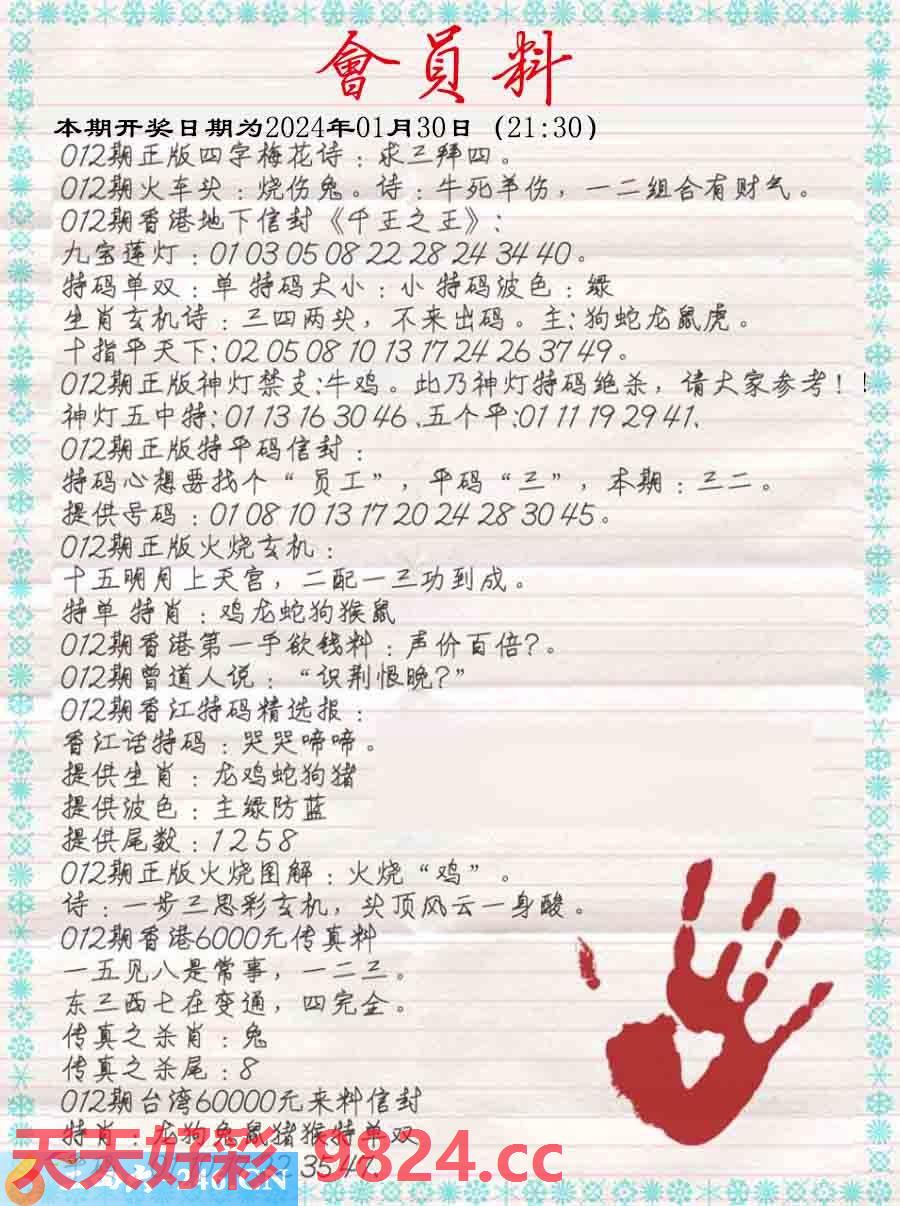 會員料
本期开奖日期为2024年01月30日（21:30）
012期正版四字梅花诗：求三拜四。
012期火车头：烧伤兔。诗：牛死羊伤，一二组合有财气。
012期香港地下信封《千王之王》：
九宝莲灯：01 03 05 08 22 28 24 34 40。
特码单双：单 特码大小：小 特码波色：绿
生肖玄机诗：三四两头，不来出码。主：狗蛇龙鼠虎。
十指平天下：02 05 08 10 13 17 24 26 37 49。
012期正版神灯禁支:牛鸡。此乃神灯特码绝杀，请大家参考！！
神灯五中特：01 13 16 30 46、五个平:01 11 19 29 41、
012期正版特平码信封：
特码心想要找个“员工”，平码“三”，本期：三二。
提供号码：01 08 10 13 17 20 24 28 30 45。
012期正版火烧玄机：
十五明月上天宫，二配一三功到成。
特单 特肖：鸡龙蛇狗猴鼠
012期香港第一手欲钱料：声价百倍?。
012期曾道人说：“识荆恨晚?”
012期香江特码精选报：
香江话特码：哭哭啼啼。
提供生肖：龙鸡蛇狗猪
提供波色：主绿防蓝
提供尾数：1 2 5 8
012期正版火烧图解：火烧“鸡”。
诗：一步三思彩玄机，头顶风云一身酸。
012期香港6000元传真料
一五见八是常事，一二三。
东三西七在变通，四完金。
传真之杀肖：兔
传真之杀尾：8
012期台湾60000元来料信封
特肖：龙狗兔鼠猪猴特单双
35 47、
天天好彩 9824.cc
246.CN